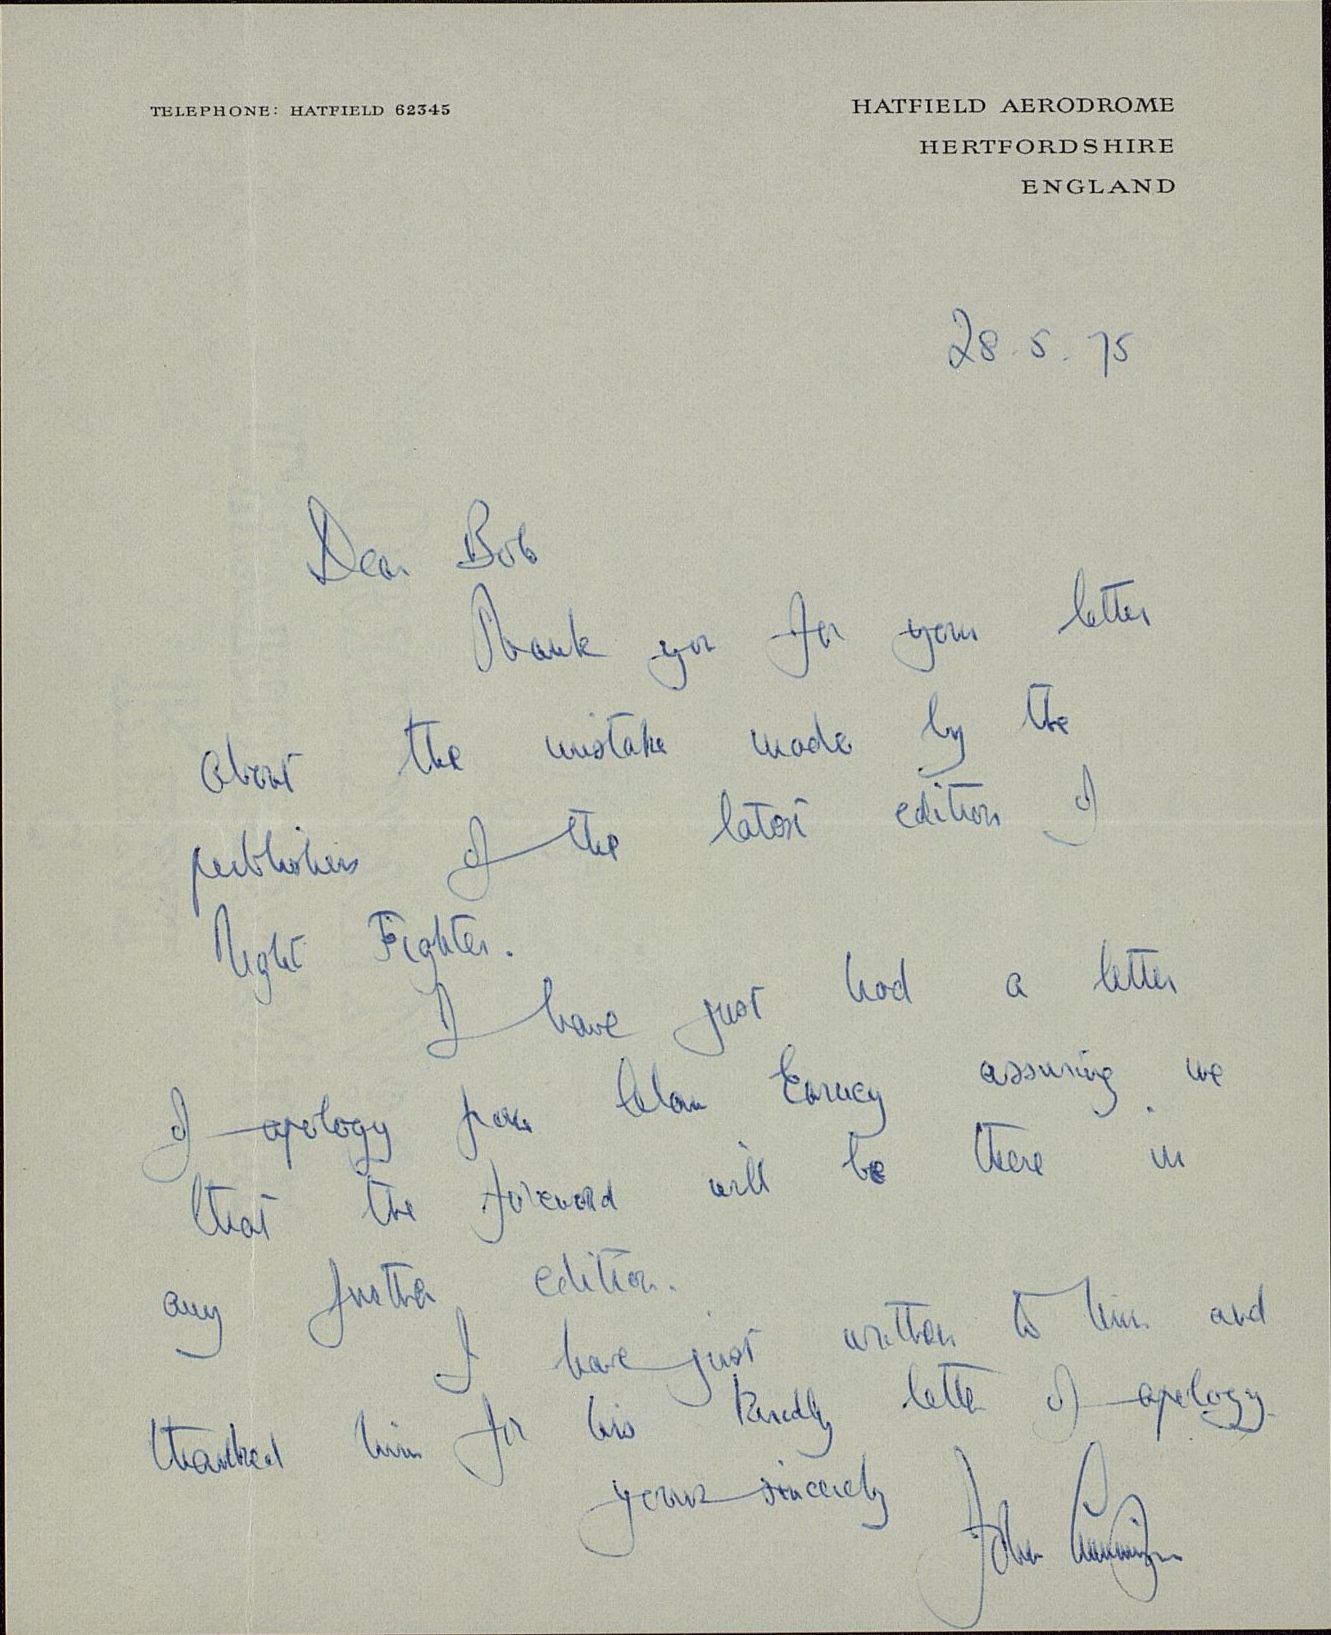 TELEPHONE: HATFIELD 62345
HATFIELD AERODROME
HERTFORDSHIRE
ENGLAND
28.5.75
Dear Bob
Thank you for your letter
about the mistake made by the
publishers of the latest edition of
Night Fighter.
I have just had a letter
of apology from Alan Earney assuring me
that the foreword will be there in
any further edition.
I have just written to him and
thanked him for his kindly letter of apology
yours sincerely
John Cunningham